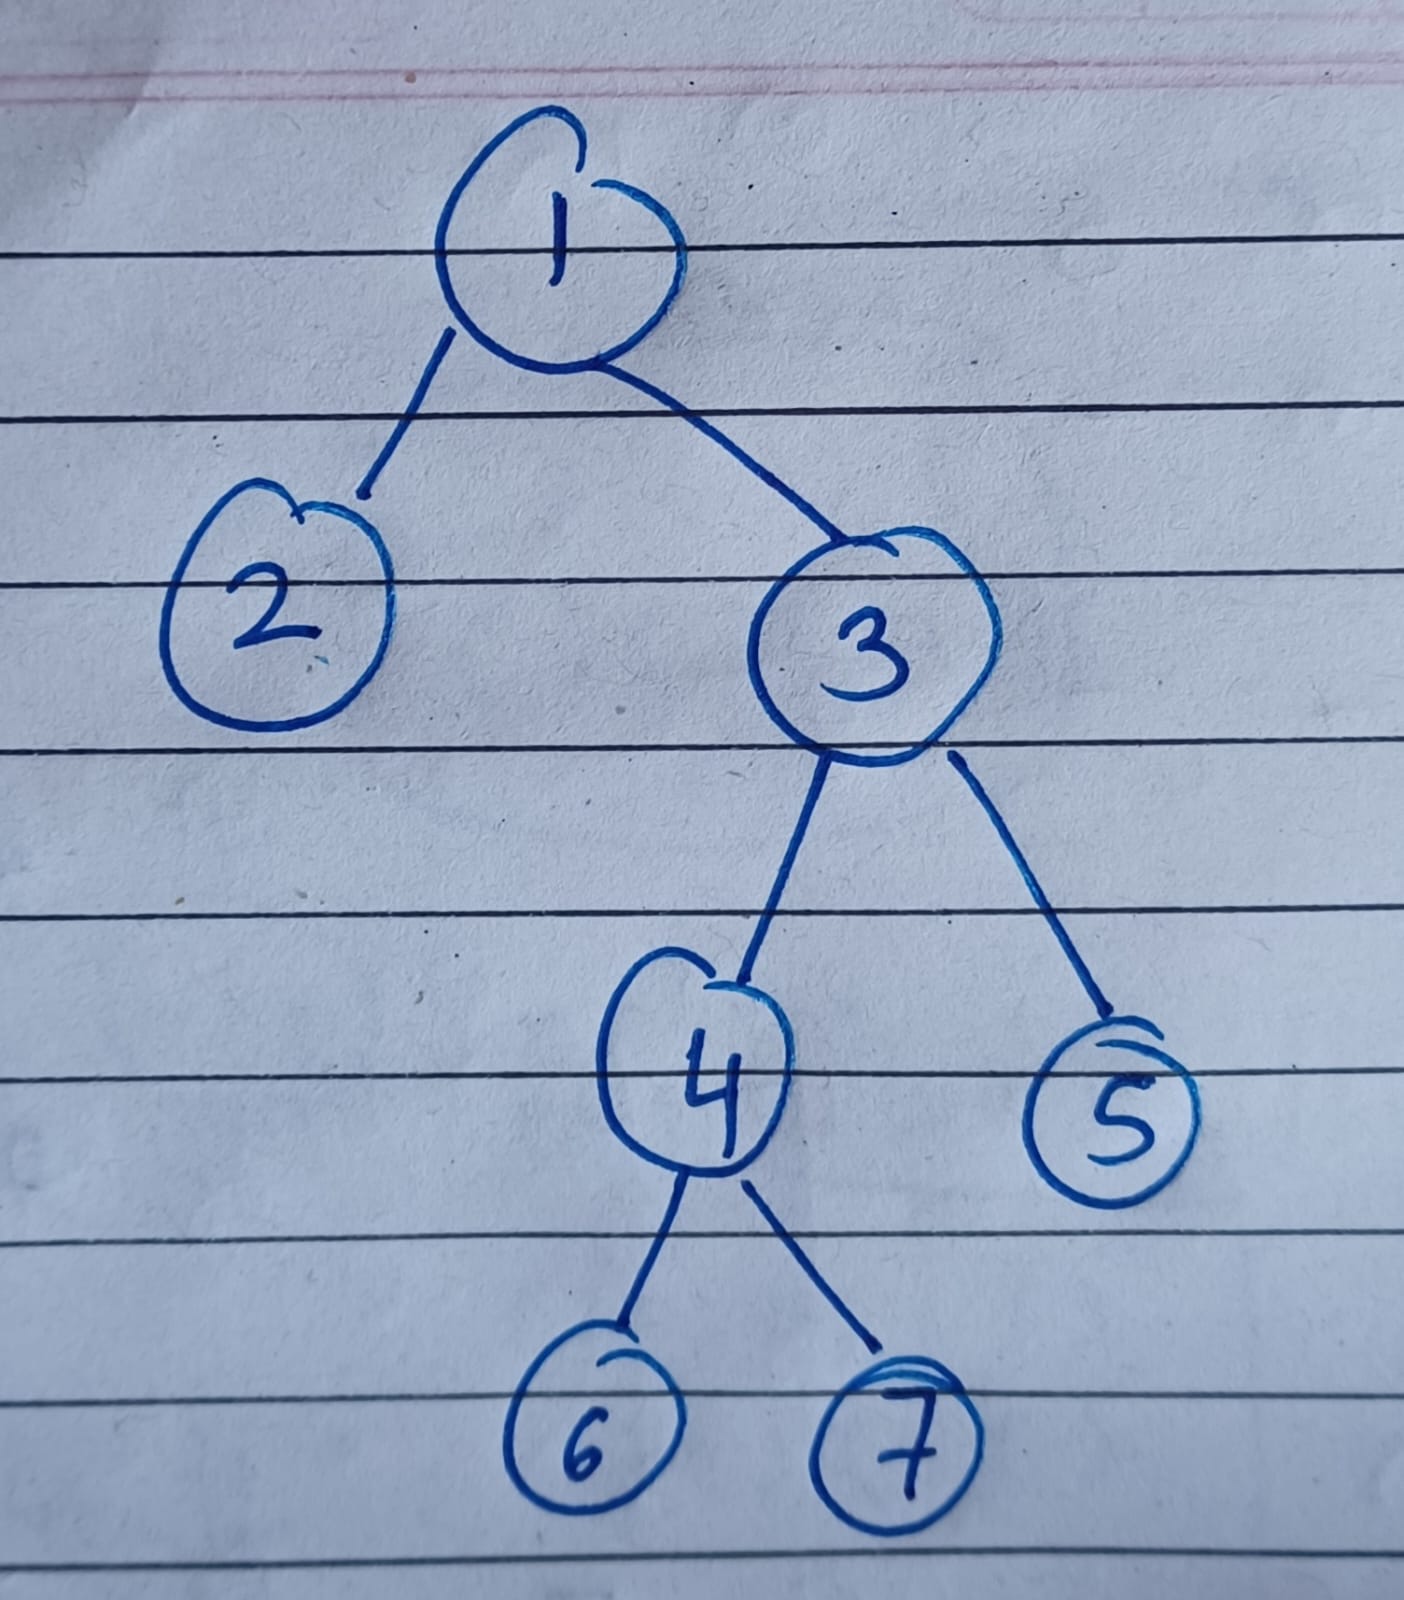 1
2 3
4 5
6 7